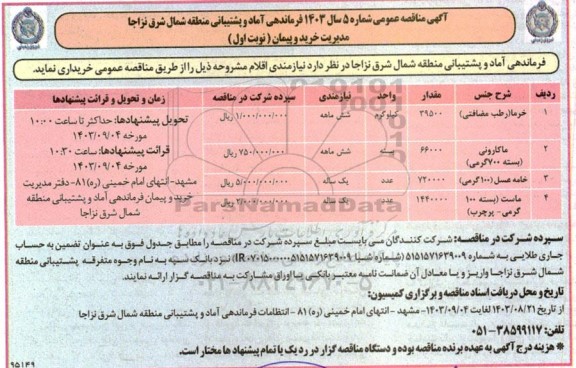 آگهی مناقصه عمومی شماره ۵ سال ۱۴۰۳ فرماندهی آماد و پشتیبانی منطقه شمال شرق نزاجا
مدیریت خرید و پیمان (نوبت اول)
فرماندهی آماد و پشتیبانی منطقه شمال شرق نزاجا در نظر دارد نیازمندی اقلام مشروحه ذیل را از طریق مناقصه عمومی خریداری نماید.
ردیف شرح جنس مقدار واحد نیازمندی سپرده شرکت در مناقصه زمان و تحویل و قرائت پیشنهادها
۱ خرما(رطب مضافتی) ۳۹۵۰۰ کیلوگرم شش ماهه ۱/۰۰۰/۰۰۰/۰۰۰ ریال
۲ ماکارونی (بسته ۷۰۰گرمی) ۶۶۰۰۰ بسته شش ماهه ۷۵۰/۰۰۰/۰۰۰ ریال
۳ خامه عسل (۱۰۰گرمی) ۷۲۰۰۰۰ عدد یک ساله ۵/۰۰۰/۰۰۰/۰۰۰ ریال
۴ ماست (بسته ۱۰۰ گرمی - پرچرب) ۱۴۴۰۰۰۰ عدد یک ساله ۲/۰۰۰/۰۰۰/۰۰۰ ریال
تحویل پیشنهادها: حداکثر تا ساعت ۱۰:۰۰
مورخه ۱۴۰۳/۰۹/۰۴
قرائت پیشنهادها: ساعت ۱۰:۳۰
مورخه ۱۴۰۳/۰۹/۰۴
مشهد-انتهای امام خمینی (ره)۸۱- دفتر مدیریت
خرید و پیمان فرماندهی آماد و پشتیبانی منطقه
شمال شرق نزاجا
ParsNamadData
سپرده شرکت در مناقصه: شرکت کنندگان می بایست مبلغ سپرده شرکت در مناقصه را مطابق جدول فوق به عنوان تضمین به حساب
جاری طلایی به شماره ۵۱۵۱۵۷۱۶۳۹۰۰۹ (شماره شبا IR۰۷۰۱۵۰۰۰۰۰۵۱۵۱۵۷۱۶۳۹۰۰۹) نزد بانک سپه به نام وجوه متفرقه پشتیبانی منطقه
شمال شرق نزاجا واریز و یا معادل آن ضمانت نامه معتبر بانکی یا اوراق مشارکت به مناقصه گزار ارائه نمایند.
تاریخ و محل دریافت اسناد مناقصه و برگزاری کمیسیون:
از تاریخ ۱۴۰۳/۰۸/۲۱ لغایت ۱۴۰۳/۰۹/۰۴- مشهد - انتهای امام خمینی (ره) ۸۱ - انتظامات فرماندهی آماد و پشتیبانی منطقه شمال شرق نزاجا
تلفن: ۳۸۵۹۹۱۱۷-۰۵۱
* هزینه درج آگهی به عهده برنده مناقصه بوده و دستگاه مناقصه گزار در رد یک یا تمام پیشنهاد ها مختار است.
۹۵۱۴۹